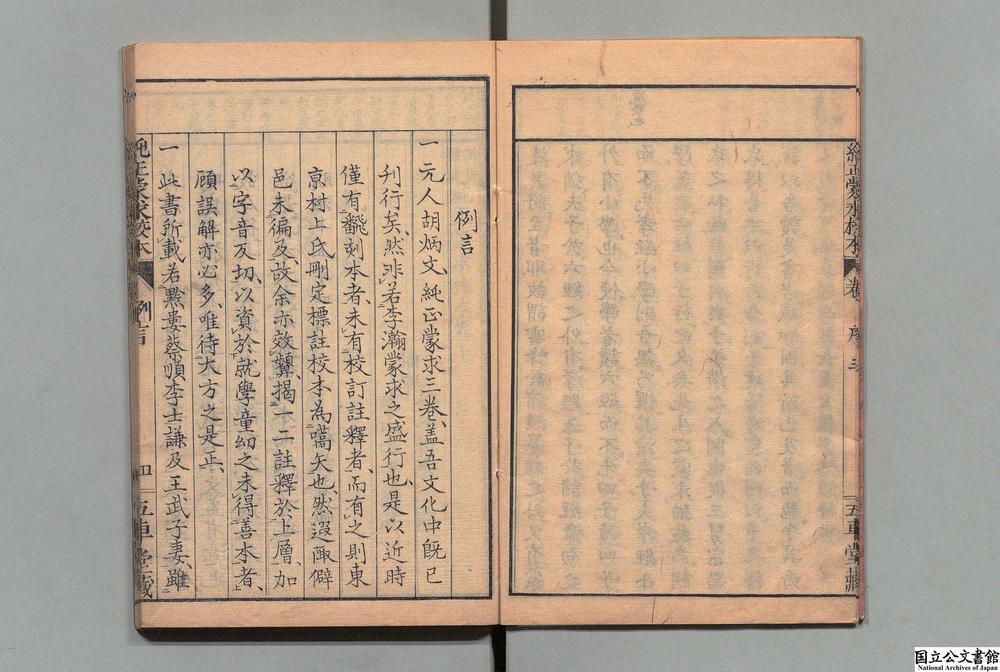 純正蒙求校本 卷 序 三 五車堂藏
例言
一元人胡炳文純正蒙求三卷蓋吾文化中既已
刊行矣然非若李瀚蒙求之盛行也是以近時
僅有飜刻本者未有校訂註釋者而有之則東
京村上氏刪定標註校本為嚆矢也然遐陬僻
邑未徧及故余亦效顰揭一二註釋於上層加
以字音反切以資於就學童幼之未得善本者
顧誤解亦必多唯待大方之是正
一此書所載若黔婁蔡順李士謙及王武子妻雖
純正蒙求校本 例言 四 五車堂藏
国立公文書館
National Archives of Japan